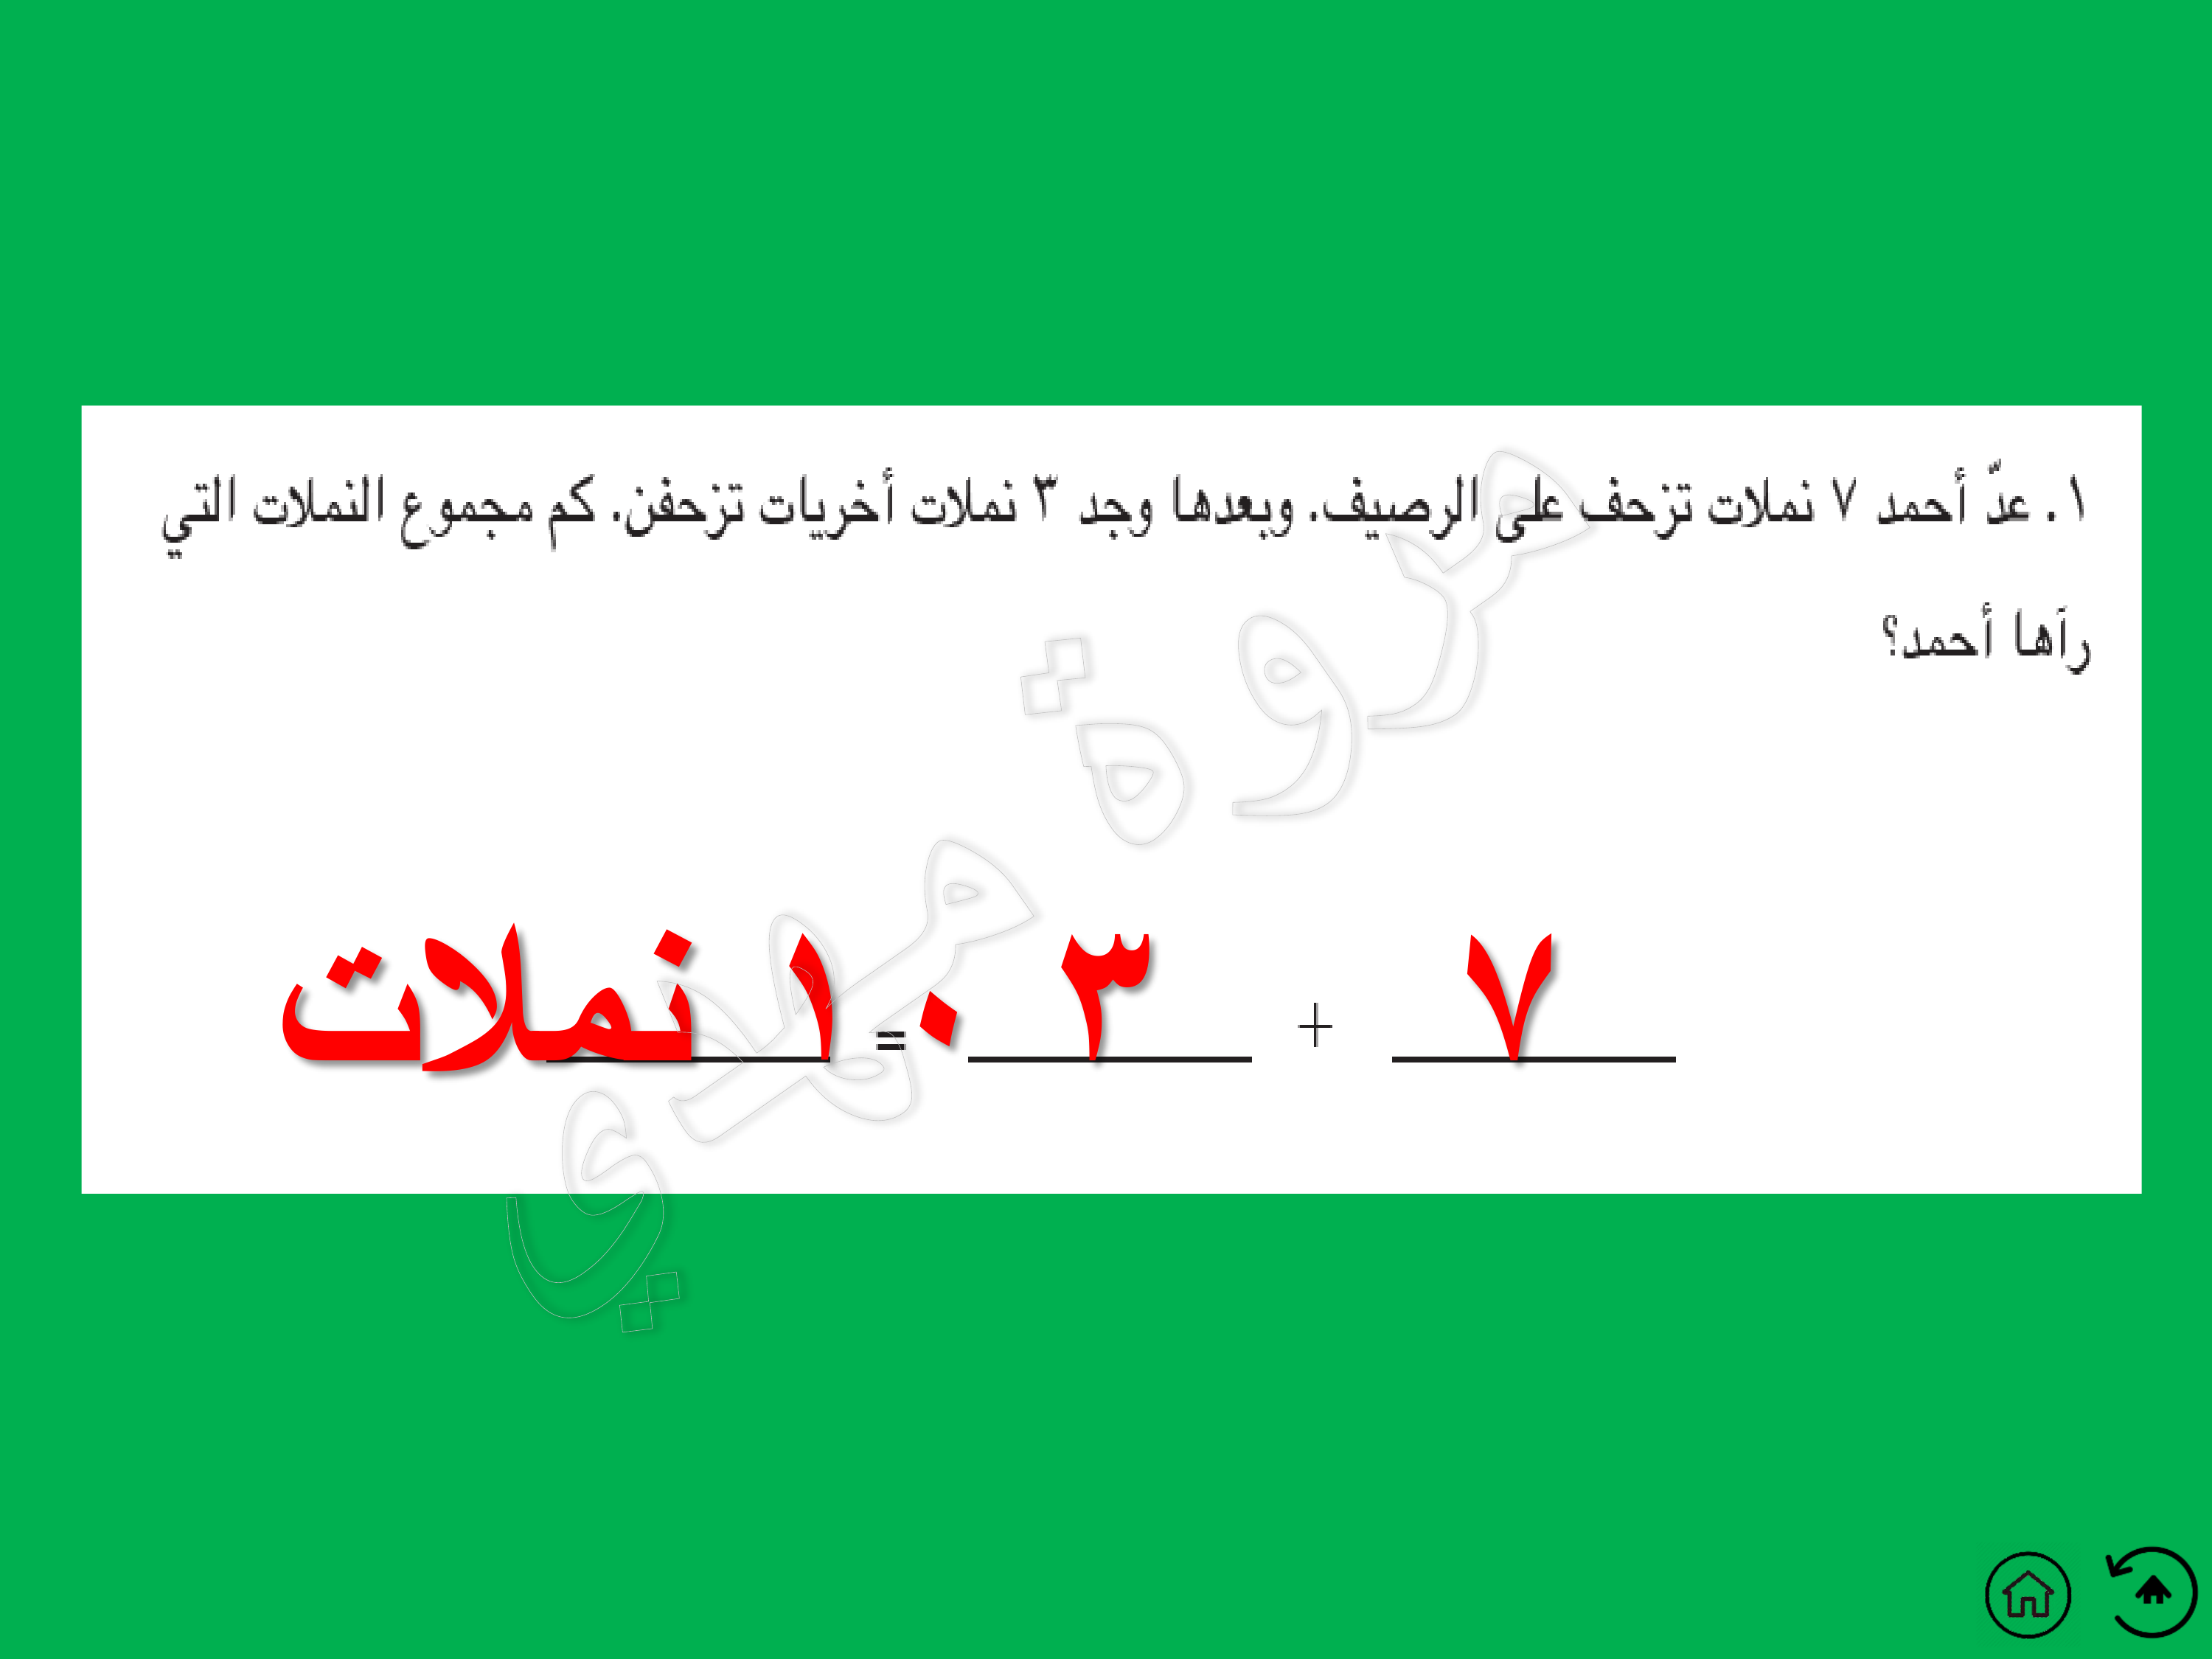 ١. عدّ أحمد ٧ نملات تزحف على الرصيف. وبعدها وجد ٣ نملات أخريات تزحفن. كم مجموع النملات التي
رآها أحمد؟
٧ + ٣ = ١٠ نملات
مروة مهدي